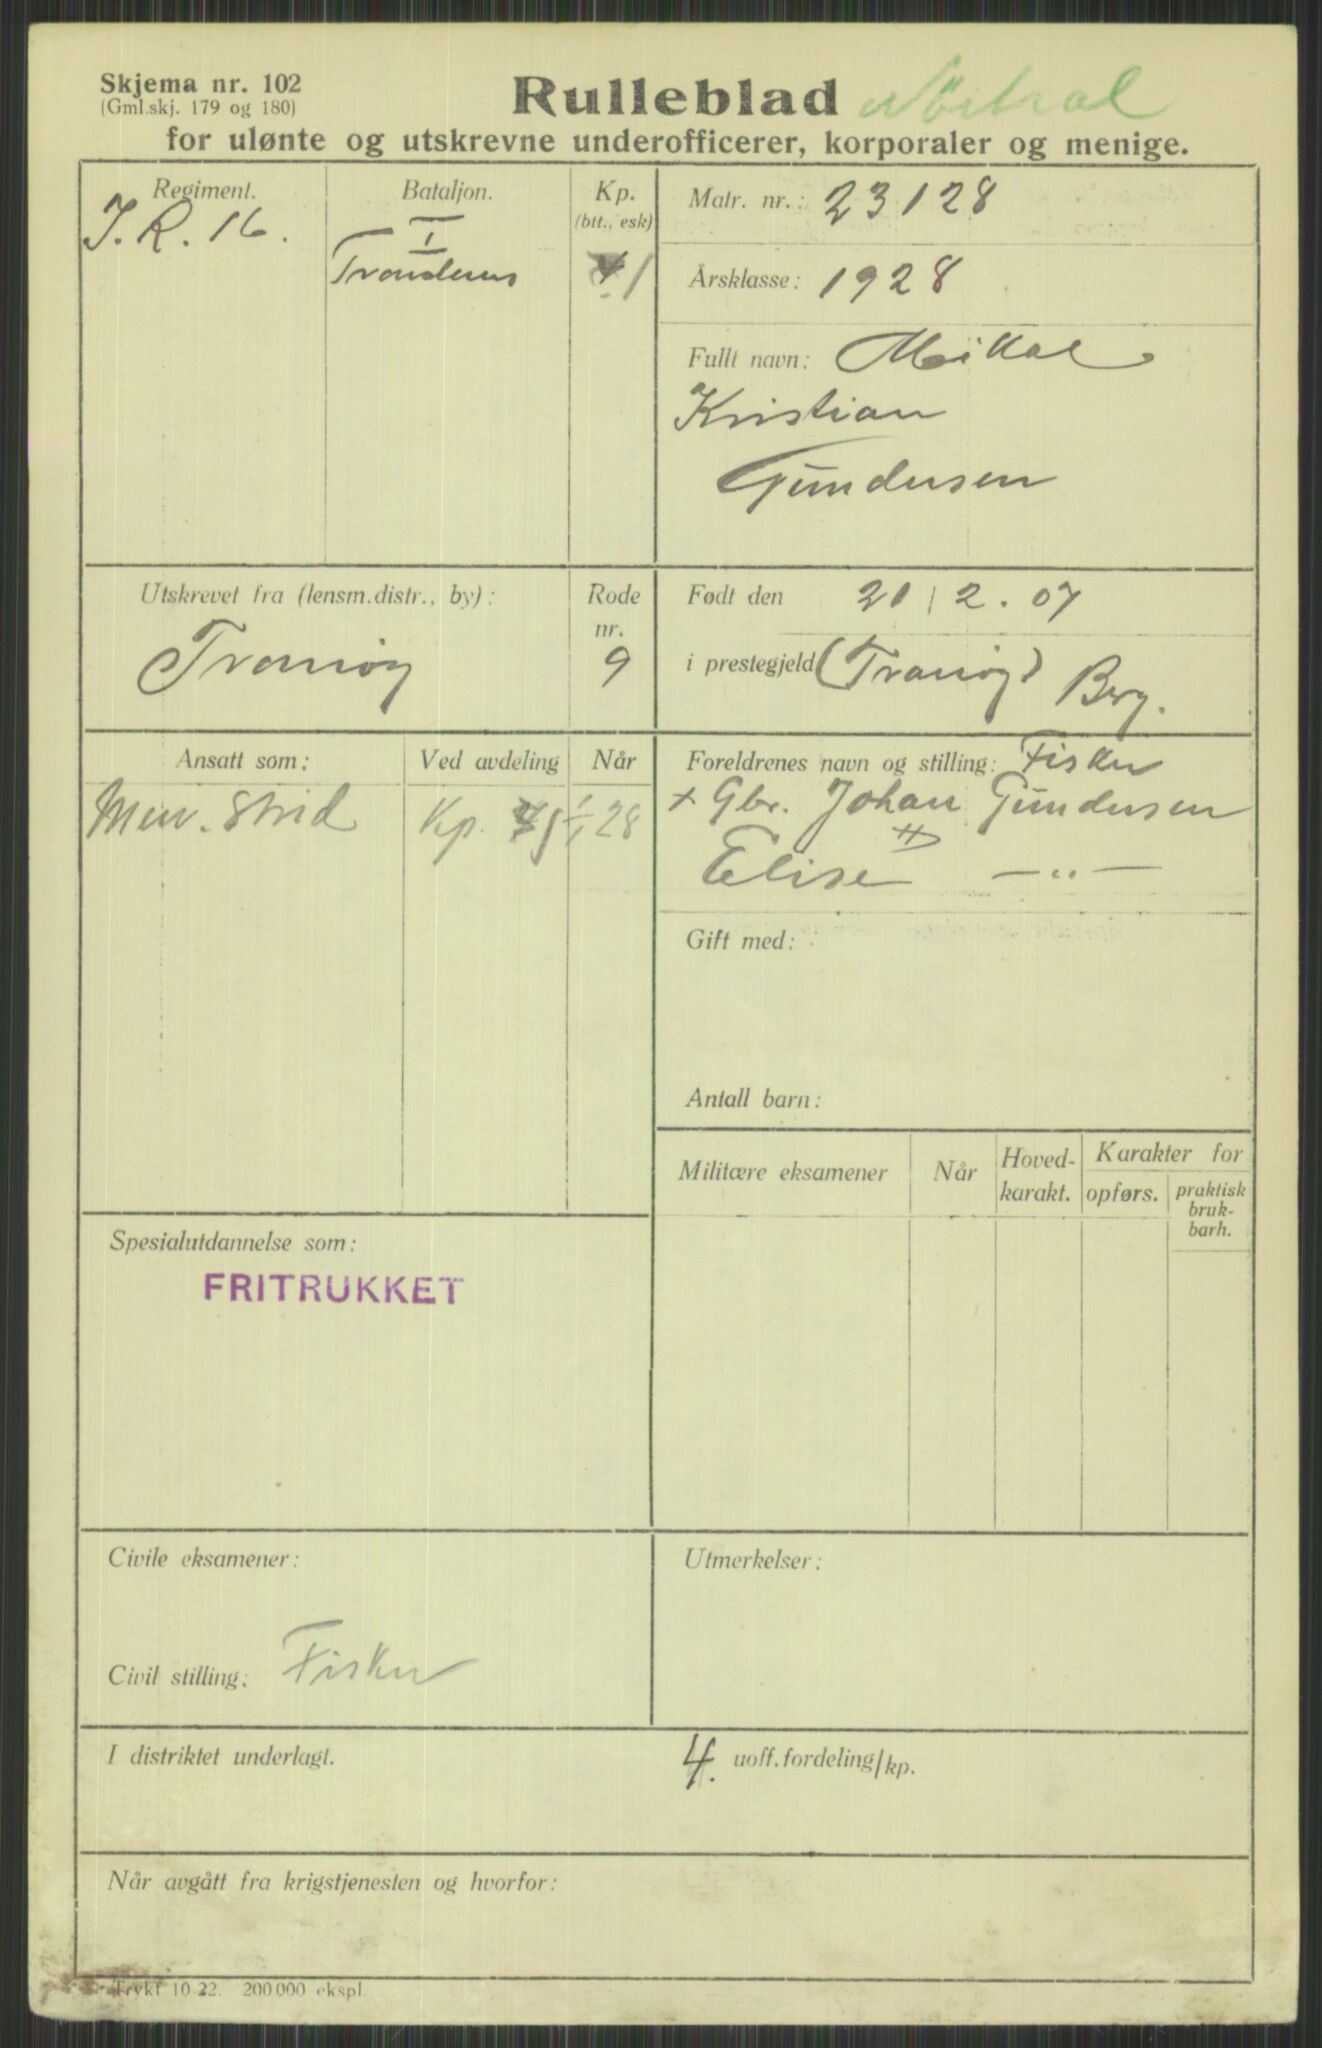 Skjema nr. 102
(Gml.skj. 179 og 180)
Rulleblad Nøitral
for ulønte og utskrevne underofficerer, korporaler og menige.
Regiment. Bataljon. Kp.
(btt., esk)
I.R. 16. I
Trondenes 1
Matr. nr.: 23128
Årsklasse: 1928
Fullt navn: Mikal
Kristian
Gundersen
Utskrevet fra (lensm.distr., by): Rode
nr.
Tranøy 9
Født den 21/2.07
i prestegjeld (Tranøy) Berg.
Ansatt som: Ved avdeling Når
Men. Strid Kp. 1 1/1 28
Foreldrenes navn og stilling: Fisker
+ Gbr. Johan Gundersen
Elise —"—
Gift med:
Antall barn:
Militære eksamener Når Hoved-
karakt. Karakter for
opførs. praktisk
bruk-
barh.
Spesialutdannelse som:
FRITRUKKET
Civile eksamener:
Utmerkelser:
Civil stilling: Fisker
I distriktet underlagt. 4. uoff.fordeling/kp.
Når avgått fra krigstjenesten og hvorfor:
Trykt 10 22. 200 000 ekspl.